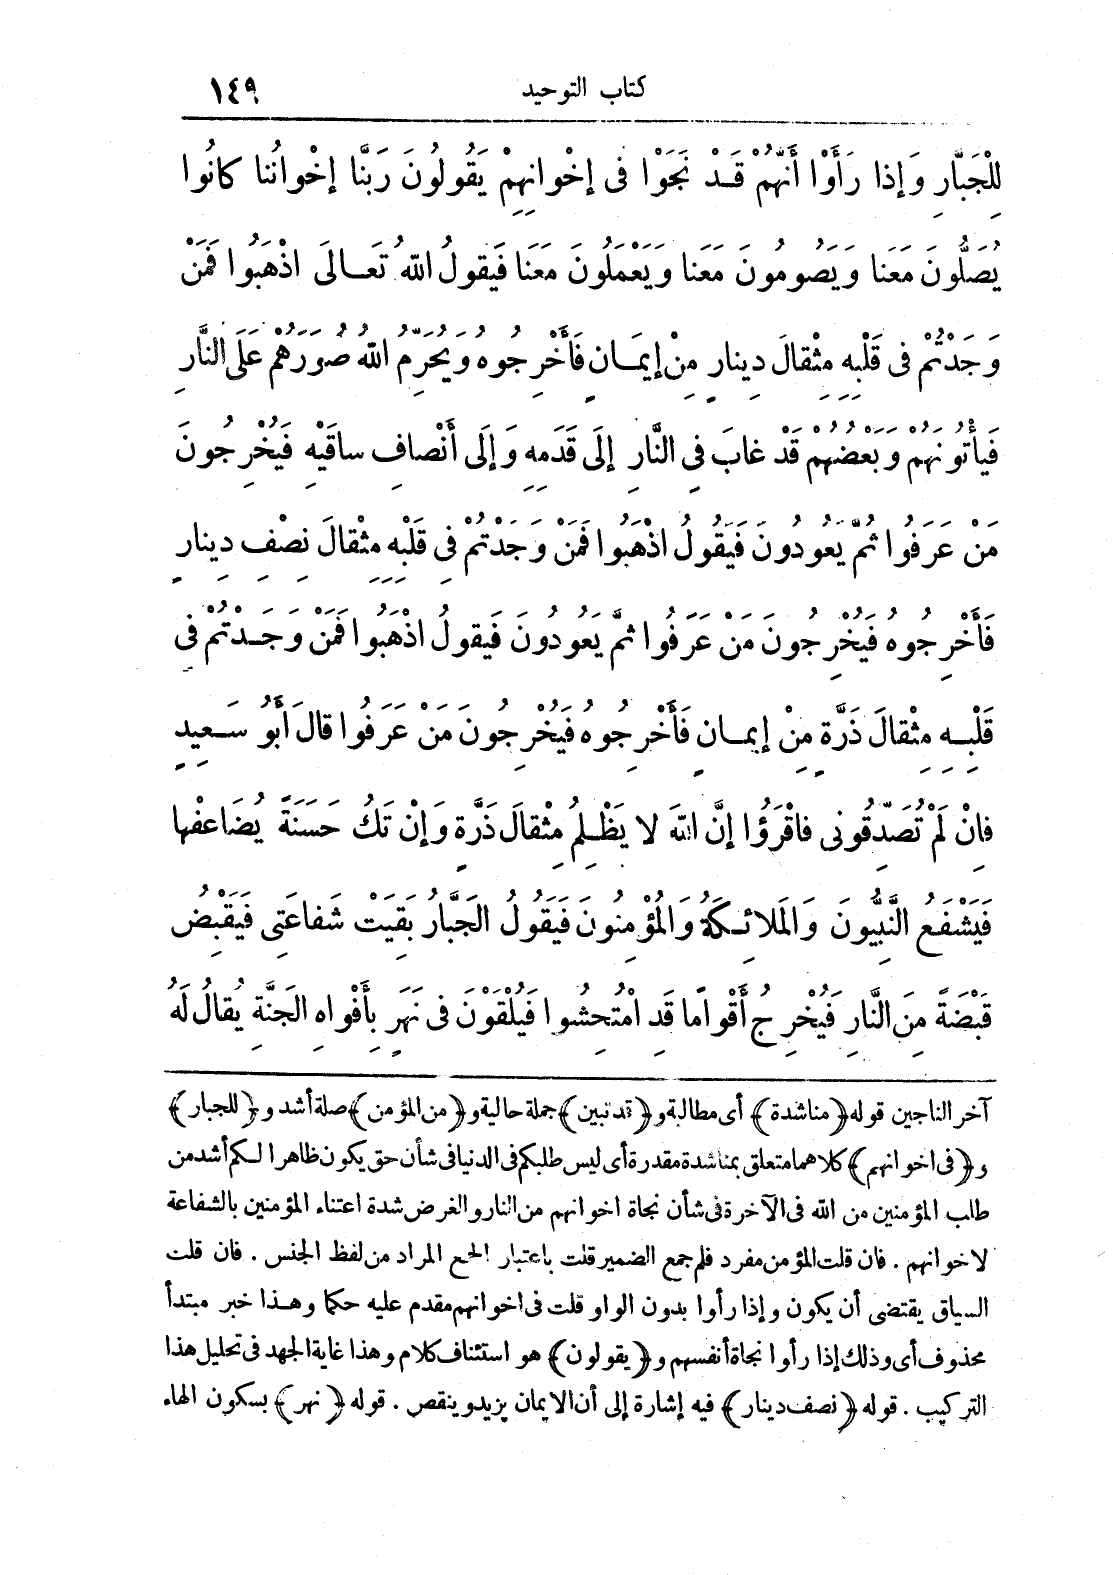 كتاب التوحيد ١٤٩
لِلْجَبَّارِ وَإِذا رَأَوْا أَنَّهُمْ قَـدْ نَجَوْا فى إخْوانِهِمْ يَقُولُونَ رَبَّنا إخْوانُنا كانُوا
يُصَلُّونَ مَعَنا وَيَصُومُونَ مَعَنا وَيَعْمَلُونَ مَعَنَا فَيقولُ اللهُ تَعـالَى اذْهَبُوا فَمَنْ
وَجَدْتُمْ فى قَلْبِهِ مِثْقالَ دِينارٍ مِنْ إيمَـانٍ فَأَخْرِجُوهُ وَيُحَرِّمُ اللهُ صُوَرَهُمْ عَلَى النَّارِ
فَيَأْتُونَهُمْ وَبَعْضُهُمْ قَدْ غابَ فِى النَّارِ إلَى قَدَمِهِ وَإلَى أَنْصافِ ساقَيْهِ فَيُخْرِجُونَ
مَنْ عَرَفُوا ثُمَّ يَعُودُونَ فَيَقُولُ اذْهَبُوا فَمَنْ وَجَدْتُمْ فِى قَلْبِهِ مِثْقالَ نِصْفِ دِينارٍ
فَأَخْرِجُوهُ فَيُخْرِجُونَ مَنْ عَرَفُوا ثمَّ يَعُودُونَ فَيَقولُ اذْهَبُوا فَمَنْ وَجَـدْتُمْ فى
قَلْبِـهِ مِثْقالَ ذَرَّةٍ مِنْ إيمـانٍ فَأَخْرِجُوهُ فَيُخْرِجُونَ مَنْ عَرَفُوا قالَ أَبُو سَـعِيدٍ
فانْ لَمْ تُصَدِّقُونِى فاقْرَؤُا إنَّ اللهَ لا يَظْـلِمُ مِثْقالَ ذَرَّةٍ وَإنْ تَكُ حَسَنَةً يُضَاعِفْها
فَيَشْفَعُ النَّبِيُّونَ وَالمَلائِـكَةُ وَالمُؤْمِنُونَ فَيَقُولُ الجَبَّارُ بَقِيَتْ شَفاعَتِى فَيَقْبِضُ
قَبْضَةً مِنَ النَّارِ فَيُخْرِجُ أَقْوامًا قَدِ امْتُحِشُوا فَيُلْقَوْنَ فى نَهَرٍ بِأَفْواهِ الجَنَّةِ يُقالُ لَهُ
آخر الناجين قوله ﴿مناشدة﴾ أى مطالبة و﴿قد تبين﴾ جملة حالية و﴿من المؤمن﴾ صلة أشد و﴿للجبار﴾
و﴿فى اخوانهم﴾ كلاهما متعلق بمناشدة مقدرة أى ليس طلبكم فى الدنيا فى شأن حق يكون ظاهرا لـكم أشد من
طلب المؤمنين من الله فى الآخرة فى شأن نجاة اخوانهم من النار والغرض شدة اعتناء المؤمنين بالشفاعة
لاخوانهم . فان قلت المؤمن مفرد فلم جمع الضمير قلت باعتبار الجمع المراد من لفظ الجنس . فان قلت
السياق يقتضى أن يكون وإذا رأوا بدون الواو قلت فى اخوانهم مقدم عليه حكما وهـذا خبر مبتدأ
محذوف أى وذلك إذا رأوا نجاة أنفسهم و﴿يقولون﴾ هو استئناف كلام وهذا غاية الجهد فى تحليل هذا
التركيب . قوله ﴿نصف دينار﴾ فيه إشارة إلى أن الايمان يزيد وينقص . قوله ﴿نهر﴾ بسكون الهاء